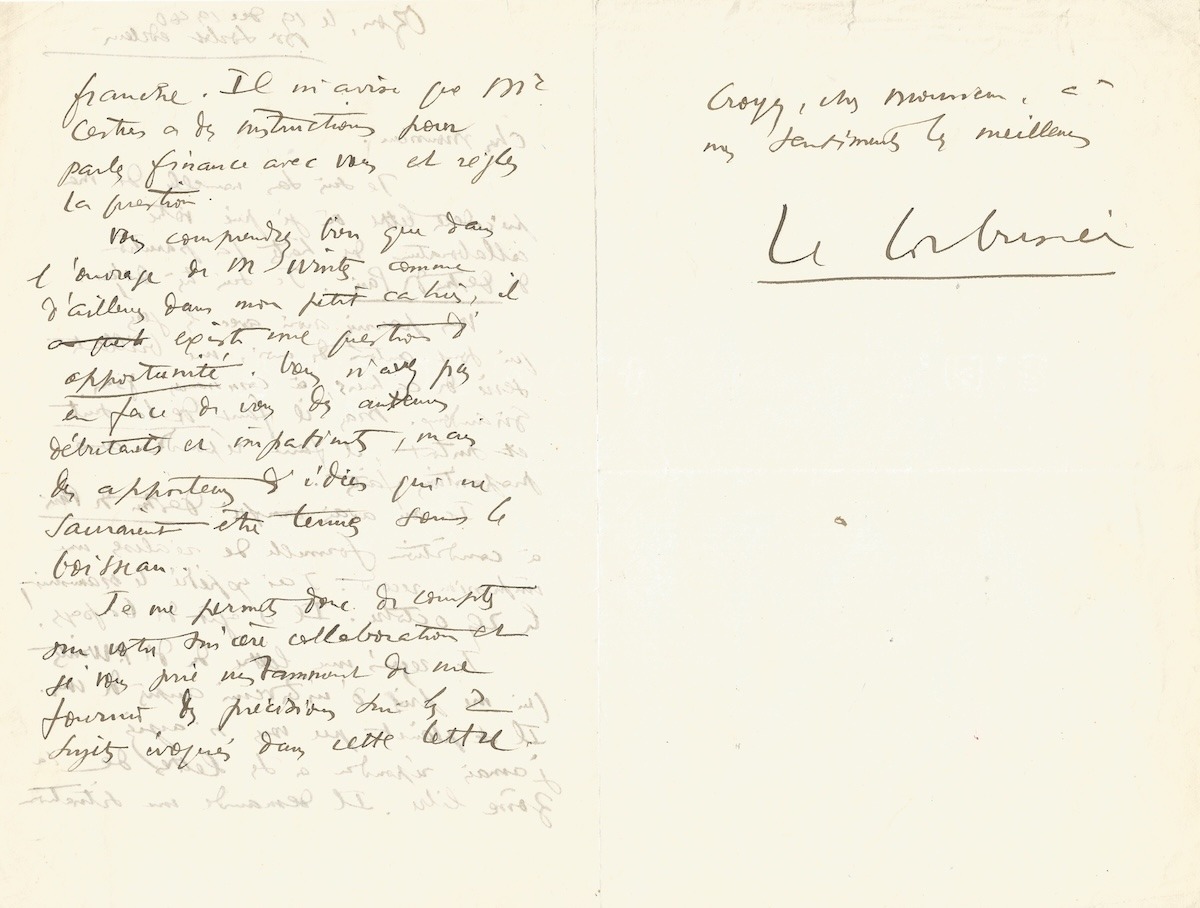 franchise. Il m'avise que Mr
a des instructions pour
parler finance avec vous et régler
la question.
Vous comprendrez bien que dans
l'ouvrage de M Winter comme
d'ailleurs dans mon petit cahier, il
existe une question d'
opportunité. Vous n'avez pas
en face de vous des auteurs
débutants et impatients, mais
des apporteurs d'idées qui ne
sauraient être tenues sous le
boisseau.
Je me permets donc de compter
sur votre sincère collaboration et
je vous prie instamment de me
fournir des précisions sur les 2
sujets évoqués dans cette lettre.
Croyez, cher Monsieur, à
mes sentiments les meilleurs
Le Corbusier